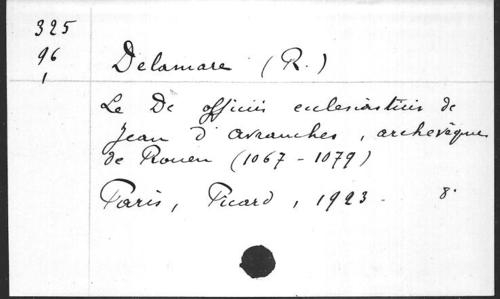 325
96
1
Delamare (R.)
Le De officiis ecclesiasticis de
Jean d'Avranches, archevêque
de Rouen (1067-1079)
Paris, Picard, 1923. 8°